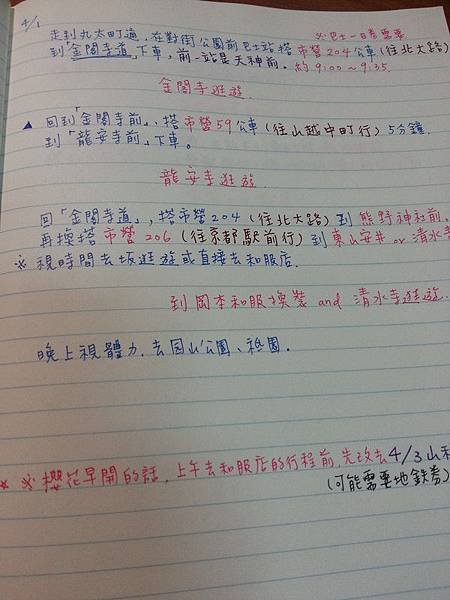 4/1
走到丸太町通，在對街公園前巴士站搭 市營204公車(往北大路)
※巴士一日卷需要
到「金閣寺道」下車，前一站是天神前。約9:00～9:35.
金閣寺逛遊.
▲ 回到「金閣寺前」，搭市營59公車(往山越中町行) 5分鐘
到「龍安寺前」下車。
龍安寺逛遊.
回「金閣寺道」，搭市營204 (往北大路) 到 熊野神社前.
再換搭 市營206 (往京都駅前行) 到東山安井 or 清水寺
※ 視時間去坂逛遊或直接去和服店.
到岡本和服換裝 and 清水寺逛遊.
晚上視體力，去円山公園、祇園。
* ※櫻花早開的話，上午去和服店的行程前，先改去4/3山科
(可能需要地鉄券)